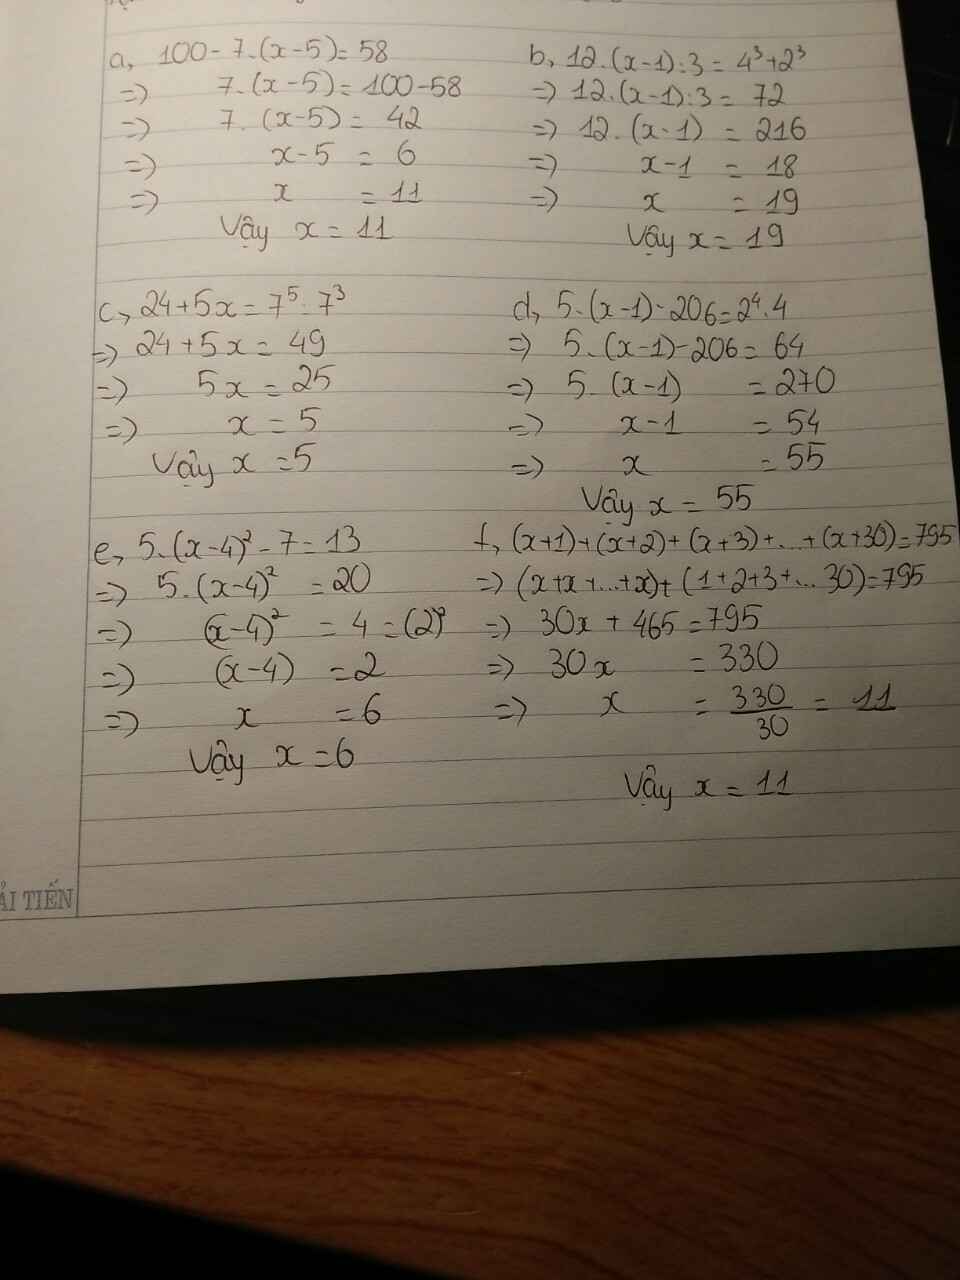 a, 100 - 7.(x-5) = 58
=> 7.(x-5) = 100-58
=> 7.(x-5) = 42
=> x-5 = 6
=> x = 11
Vậy x = 11
b, 12.(x-1):3 = 4³+2³
=> 12.(x-1):3 = 72
=> 12.(x-1) = 216
=> x-1 = 18
=> x = 19
Vậy x = 19
c, 24+5x = 7⁵:7³
=> 24+5x = 49
=> 5x = 25
=> x = 5
Vậy x = 5
d, 5.(x-1)-206=2⁴.4
=> 5.(x-1)-206 = 64
=> 5.(x-1) = 270
=> x-1 = 54
=> x = 55
Vậy x = 55
e, 5.(x-4)²-7=13
=> 5.(x-4)² = 20
=> (x-4)² = 4 = (2)²
=> (x-4) = 2
=> x = 6
Vậy x = 6
f, (x+1)+(x+2)+(x+3)+...+(x+30)=795
=> (x+x+...+x)+(1+2+3+...30)=795
=> 30x + 465 = 795
=> 30x = 330
=> x = 330/30 = 11
Vậy x = 11
ẢI TIẾN